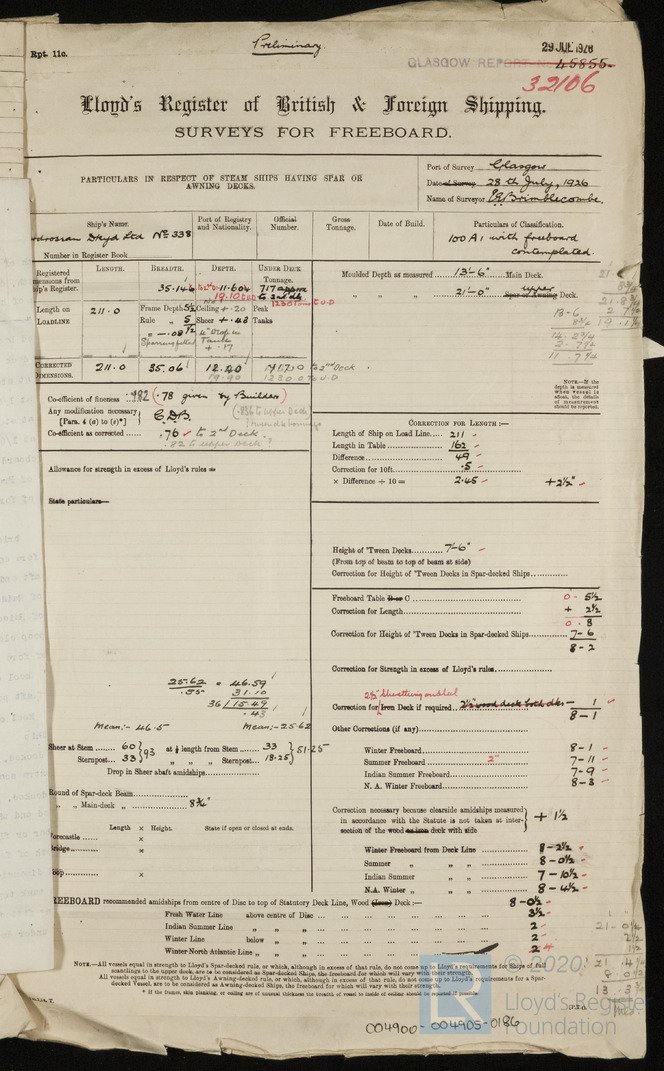 Preliminary.
Rpt. 11c.
29 JUL 1926
GLASGOW REPORT No 45855.
32106
Lloyd's Register of British & Foreign Shipping.
SURVEYS FOR FREEBOARD.
PARTICULARS IN RESPECT OF STEAM SHIPS HAVING SPAR OR
AWNING DECKS.
Port of Survey Glasgow
Date of Survey 28th July, 1926
Name of Surveyor
Ship's Name.
Port of Registry and Nationality.
Official Number.
Gross Tonnage.
Date of Build.
Particulars of Classification.
Dkyd Ltd No 338
100 A1 with freeboard
contemplated.
Number in Register Book
Registered
LENGTH. BREADTH. DEPTH. UNDER DECK TONNAGE.
35.146 11.604 717 approx
19.10
Length on LOADLINE 211.0
Frame Depth 5½ Ceiling + .20 Peak
Rule " 5 Sheer + .43 Tanks
" — .08
Sparring fitted
4" Drop in
Tanks
+ .17
CORRECTED DIMENSIONS. 211.0 35.06 12.40
19.90
Co-efficient of fineness .982 (.78 given by Builders)
Any modification necessary
[Para. 4 (a) to (e)*]
C.D.B.
Co-efficient as corrected .76 to 2nd Deck
.82 to upper deck ?
Allowance for strength in excess of Lloyd's rules
State particulars
25.62 46.59
.55 31.10
36 / 15.49
.43
Mean;- 46.5 Mean;- 25.62
Sheer at Stem 60 } 93 at ⅛ length from Stem 33 } 51.25
Sternpost 33 " " " Sternpost 18.25
Drop in Sheer abaft amidships
Round of Spar-deck Beam
" " Main-deck " 8¾"
Length × Height. State if open or closed at ends.
Forecastle ×
Bridge ×
Poop ×
Moulded Depth as measured 13'-6" Main Deck.
" " " 21'-0" upper Spar or Awning Deck.
NOTE.—If the depth is measured when vessel is afloat, the details of measurement should be reported.
CORRECTION FOR LENGTH :—
Length of Ship on Load Line 211
Length in Table 162
Difference 49
Correction for 10ft. .5
× Difference ÷ 10 = 2.45 +2½"
Height of 'Tween Decks 7'-6"
(From top of beam to top of beam at side)
Correction for Height of 'Tween Decks in Spar-decked Ships
Freeboard Table B or C 0 - 5½
Correction for Length + 2½
0 . 8
Correction for Height of 'Tween Decks in Spar-decked Ships 7 - 6
8 - 2
Correction for Strength in excess of Lloyd's rules
Correction for Iron Deck if required — 1
8 - 1
Other Corrections (if any)
Winter Freeboard 8 - 1
Summer Freeboard 2" 7 - 11
Indian Summer Freeboard 7 - 9
N. A. Winter Freeboard 8 - 3
Correction necessary because clearside amidships measured
in accordance with the Statute is not taken at inter-
section of the wood as iron deck with side
+ 1½
Winter Freeboard from Deck Line 8 - 2½
Summer " " " 8 - 0½
Indian Summer " " 7 - 10½
N.A. Winter " " " 8 - 4½
FREEBOARD recommended amidships from centre of Disc to top of Statutory Deck Line, Wood (Iron) Deck :— 8 - 0½
Fresh Water Line above centre of Disc 3½
Indian Summer Line " " 2
Winter Line below " 2
Winter North Atlantic Line " " 2
NOTE.—All vessels equal in strength to Lloyd's Spar-decked rule, or which, although in excess of that rule, do not come up to Lloyd's requirements for Ships of full
scantlings to the upper deck, are to be considered as Spar-decked Ships, the freeboard for which will vary with their strength.
All vessels equal in strength to Lloyd's Awning-decked rule, or which, although in excess of that rule, do not come up to Lloyd's requirements for a Spar-
decked Vessel, are to be considered as Awning-decked Ships, the freeboard for which will vary with their strength.
* If the frames, skin planking, or ceiling are of unusual thickness the breadth of vessel to inside of ceiling should be reported if possible.
P.T.O.
© 2020
Lloyd's Register
Foundation
004900 - 004905-0186